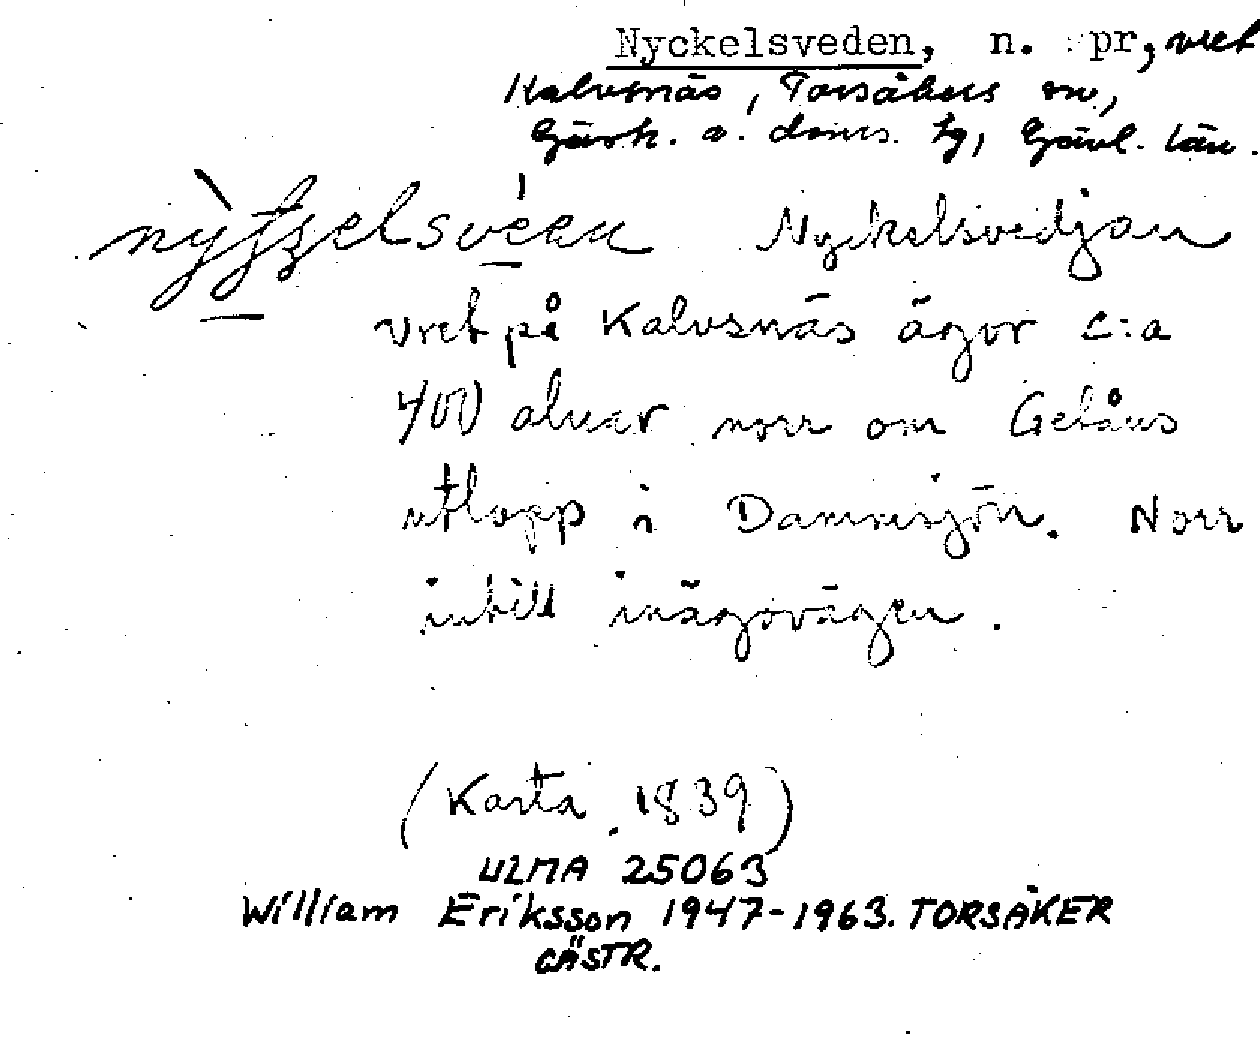 Nyckelsveden, n. pr, vret
Kalvsnäs, Torsåkers sn,
Gästr. ö. doms. tg, Gävl. län.
Nyckelsvedjan
vret på Kalvsnäs ägor c:a
400 alnar norr om Getåns
utlopp i Dammsjön. Norr
intill inägovägen.
(Karta 1839)
ULMA 25063
William Eriksson 1947-1963. TORSÅKER
GÄSTR.